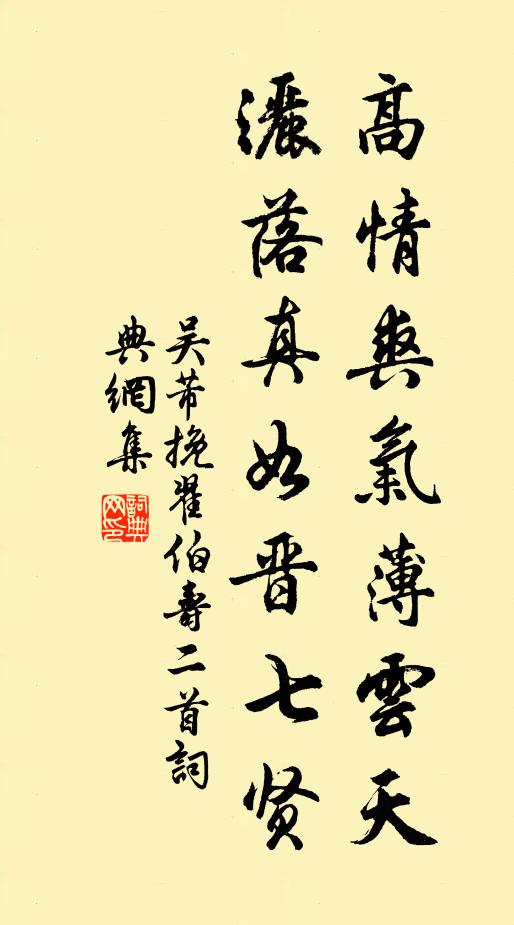 高情爽氣薄雲天
灑落真如晋七贤
吴芾挽翟伯壽二首詞
典網集
詞典
网印